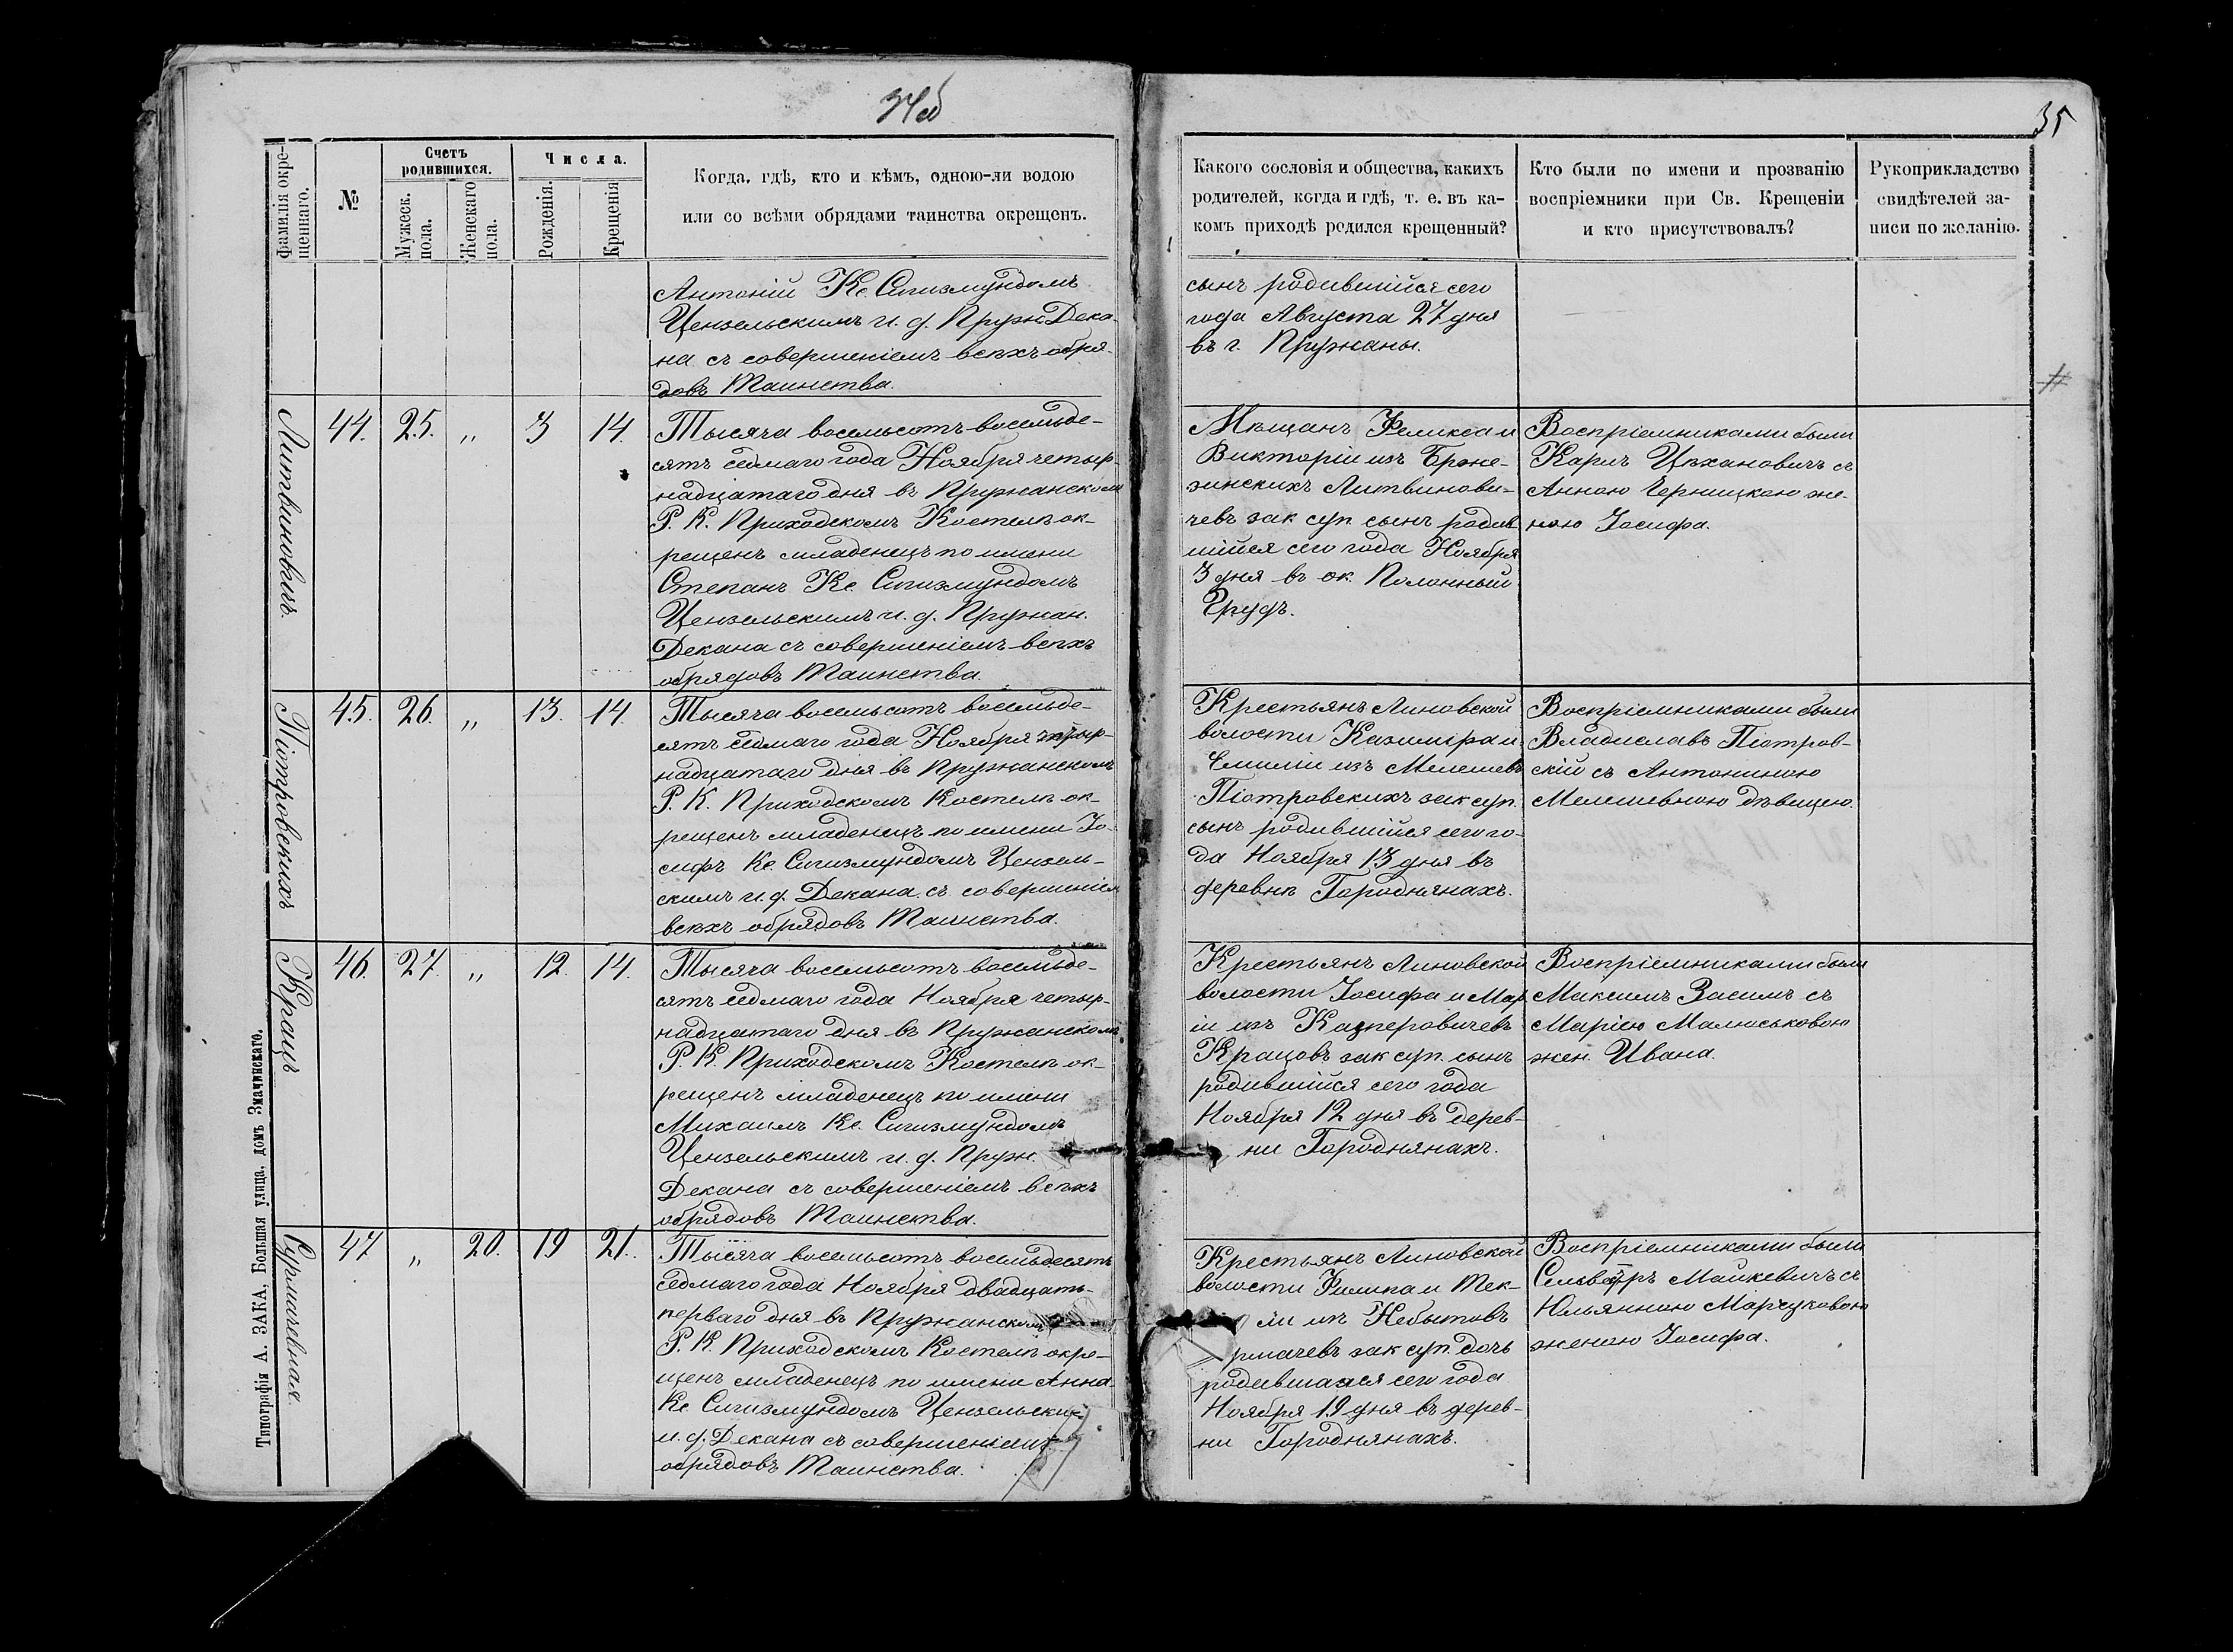 34об
35
Фамилія окре-
щеннаго.
№
Счетъ
родившихся.
Мужеск.
пола.
Женскаго
пола.
Числа.
Рожденія.
Крещенія
Когда, гдѣ, кто и кѣмъ, одною-ли водою
или со всѣми обрядами таинства окрещенъ.
Какого сословія и общества, какихъ
родителей, когда и гдѣ, т. е. въ ка-
комъ приходѣ родился крещенный?
Кто были по имени и прозванію
воспріемники при Св. Крещеніи
и кто присутствовалъ?
Рукоприкладство
свидѣтелей за-
писи по желанію.
Антоній Кс. Сигизмундомъ
Цензельскимъ и. д. Пружн Дека-
на съ совершеніемъ всѣхъ обря-
довъ Таинства.
сынъ родившійся сего
года Августа 27 дня
въ г. Пружаны.
Литвиновичъ.
44. 25. „ 3 14.
Тысяча восемьсотъ восемьде-
сятъ седмаго года Ноября четыр-
надцатаго дня въ Пружанскомъ
Р. К. Приходскомъ Костелѣ ок-
рещенъ младенецъ по имени
Степанъ Кс. Сигизмундомъ
Цензельскимъ и. д. Пружан.
Декана съ совершеніемъ всѣхъ
обрядовъ Таинства.
Мѣщанъ Феликса и
Викторіи изъ Брже-
зинскихъ Литвинови-
чевъ зак суп сынъ родив
шійся сего года Ноября
3 дня въ ок. Полонный
Грудъ.
Воспріемниками были
Карлъ Цѣхановичъ съ
Анною Черницкою же-
ною Іосифа.
Піотровскихъ
45. 26. „ 13. 14.
Тысяча восемьсотъ восемьде-
сятъ седмаго года Ноября четыр-
надцатаго дня въ Пружанскомъ
Р. К. Приходскомъ Костелѣ ок-
рещенъ младенецъ по имени Іо-
сифъ Кс. Сигизмундомъ Цензель-
скимъ и. д. Декана съ совершеніем
всѣхъ обрядовъ Таинства.
Крестьянъ Линовской
волости Казиміра и
Емиліи изъ Мелешевъ
Піотровскихъ зак суп.
сынъ родившійся сего го-
да Ноября 13 дня въ
деревнѣ Городнянахъ.
Воспріемниками были
Владиславъ Піотров-
скій съ Антониною
Мелешевною дѣвицею.
Крацъ
46. 27. „ 12. 14.
Тысяча восемьсотъ восемьде-
сятъ седмаго года Ноября четыр-
надцатаго дня въ Пружанскомъ
Р. К. Приходскомъ Костелѣ ок-
рещенъ младенецъ по имени
Михаилъ Кс. Сигизмундомъ
Цензельскимъ и. д. Пружн.
Декана съ совершеніемъ всѣхъ
обрядовъ Таинства.
Крестьянъ Линовской
волости Іосифа и Мар
іи изъ Касперовичевъ
Крацовъ зак суп. сынъ
родившійся сего года
Ноября 12 дня въ дерев-
ни Городнянахъ.
Воспріемниками были
Максимъ Засимъ съ
Маріею Малюськовою
жен. Ивана.
Сурмачевная.
47 „ 20. 19 21.
Тысяча восемьсотъ восемьдесятъ
седмаго года Ноября двадцать-
перваго дня въ Пружанскомъ
Р. К. Приходскомъ Костелѣ окре-
щенъ младенецъ по имени Анна
Кс Сигизмундомъ Цензельски
и. д. Декана съ совершеніемъ
обрядовъ Таинства.
Крестьянъ Линовской
волости Филипа и Тек-
ли изъ Небытовъ
рмачевъ зак суп. дочь
родившаяся сего года
Ноября 19 дня въ дерев-
ни Городнянахъ.
Воспріемниками были
Майкевичъ съ
Юльянною Марцуковою
женою Іосифа.
Типографія А. ЗАКА, Большая улица, домъ Значинскаго.